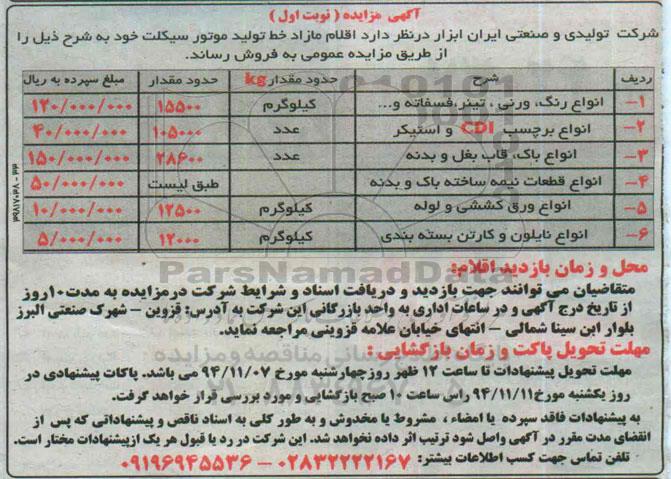 آگهی مزایده ( نوبت اول )
شرکت تولیدی و صنعتی ایران ابزار درنظر دارد اقلام مازاد خط تولید موتور سیکلت خود به شرح ذیل را
از طریق مزایده عمومی به فروش رساند.
ردیف شرح حدود مقدار kg حدود مقدار مبلغ سپرده به ریال
۱– انواع رنگ، ورنی ، تینر ،فسفاته و... کیلوگرم ۱۵۵۰۰ ۱۲۰/۰۰۰/۰۰۰
۲– انواع برچسب CDI و استیکر عدد ۱۰۵۰۰۰ ۴۰/۰۰۰/۰۰۰
۳– انواع باک، قاب بغل و بدنه عدد ۲۸۶۰۰ ۱۵۰/۰۰۰/۰۰۰
۴– انواع قطعات نیمه ساخته باک و بدنه طبق لیست ۵۰/۰۰۰/۰۰۰
۵– انواع ورق کششی و لوله کیلوگرم ۱۲۵۰۰ ۱۰/۰۰۰/۰۰۰
۶– انواع نایلون و کارتن بسته بندی کیلوگرم ۱۲۰۰۰ ۵/۰۰۰/۰۰۰
ParsNamadData
محل و زمان بازدید اقلام:
متقاضیان می توانند جهت بازدید و دریافت اسناد و شرایط شرکت درمزایده به مدت۱۰روز
از تاریخ درج آگهی و در ساعات اداری به واحد بازرگانی این شرکت به آدرس: قزوین – شهرک صنعتی البرز
بلوار ابن سینا شمالی – انتهای خیابان علامه قزوینی مراجعه نماید.
مهلت تحویل پاکت و زمان بازگشایی :
مهلت تحویل پیشنهادات تا ساعت ۱۲ ظهر روزچهارشنبه مورخ ۹۴/۱۱/۰۷ می باشد. پاکات پیشنهادی در
روز یکشنبه مورخ۹۴/۱۱/۱۱ راس ساعت ۱۰ صبح بازگشایی و مورد بررسی قرار خواهد گرفت.
به پیشنهادات فاقد سپرده یا امضاء ، مشروط یا مخدوش و به طور کلی به اسناد ناقص و پیشنهاداتی که پس از
انقضای مدت مقرر در آگهی واصل شود ترتیب اثر داده نخواهد شد. این شرکت در رد یا قبول هر یک ازپیشنهادات مختار است.
تلفن تماس جهت کسب اطلاعات بیشتر: ۰۲۸۳۲۲۲۲۱۶۷ – ۰۹۱۹۶۹۴۵۵۳۶